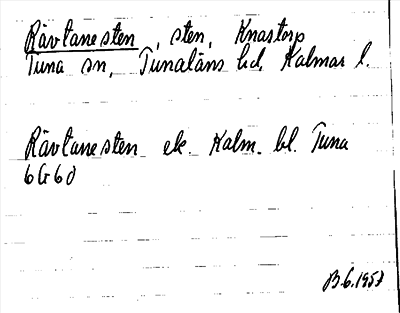 Rävtanesten, sten, Knastorp
Tuna sn, Tunaläns hd, Kalmar l.
Rävtanesten ek. Kalm. bl. Tuna
6G6d
B.6.1957